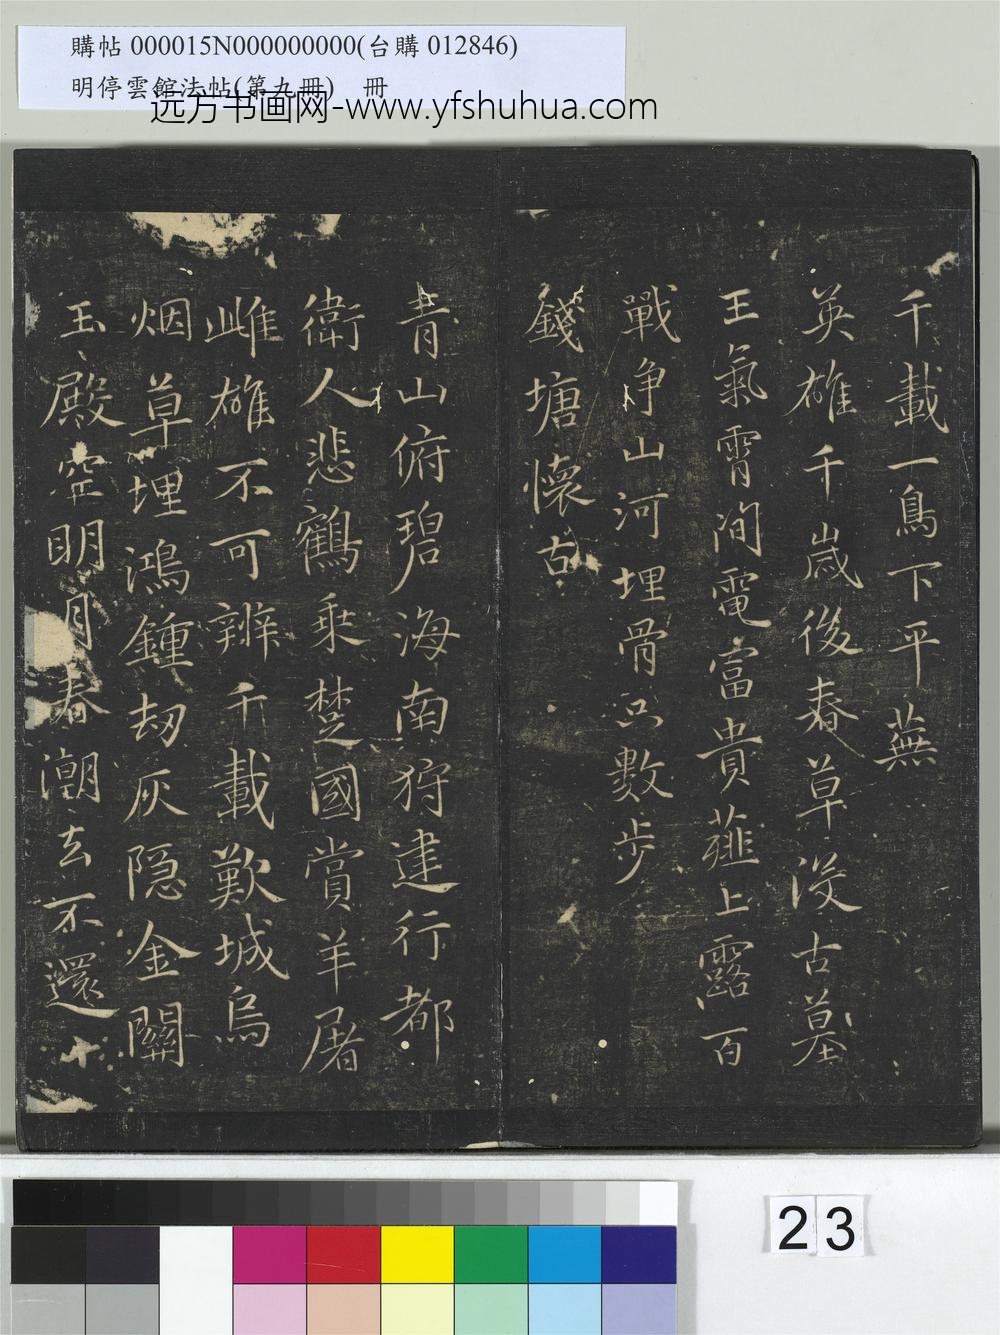 購帖 000015N000000000(台購 012846)
明停雲館法帖(第九冊) 冊
远方书画网-www.yfshuhua.com
千載一鳥下平蕪
英雄千歲後春草沒古墓
王氣霄間電富貴薤上露百
戰爭山河埋骨只數步
錢塘懷古
青山俯碧海南狩建行都
衛人悲鶴乘楚國賞羊屠
雌雄不可辨千載歎城烏
烟草埋鴻鍾劫灰隠金關
玉殿空明月春潮去不還
23